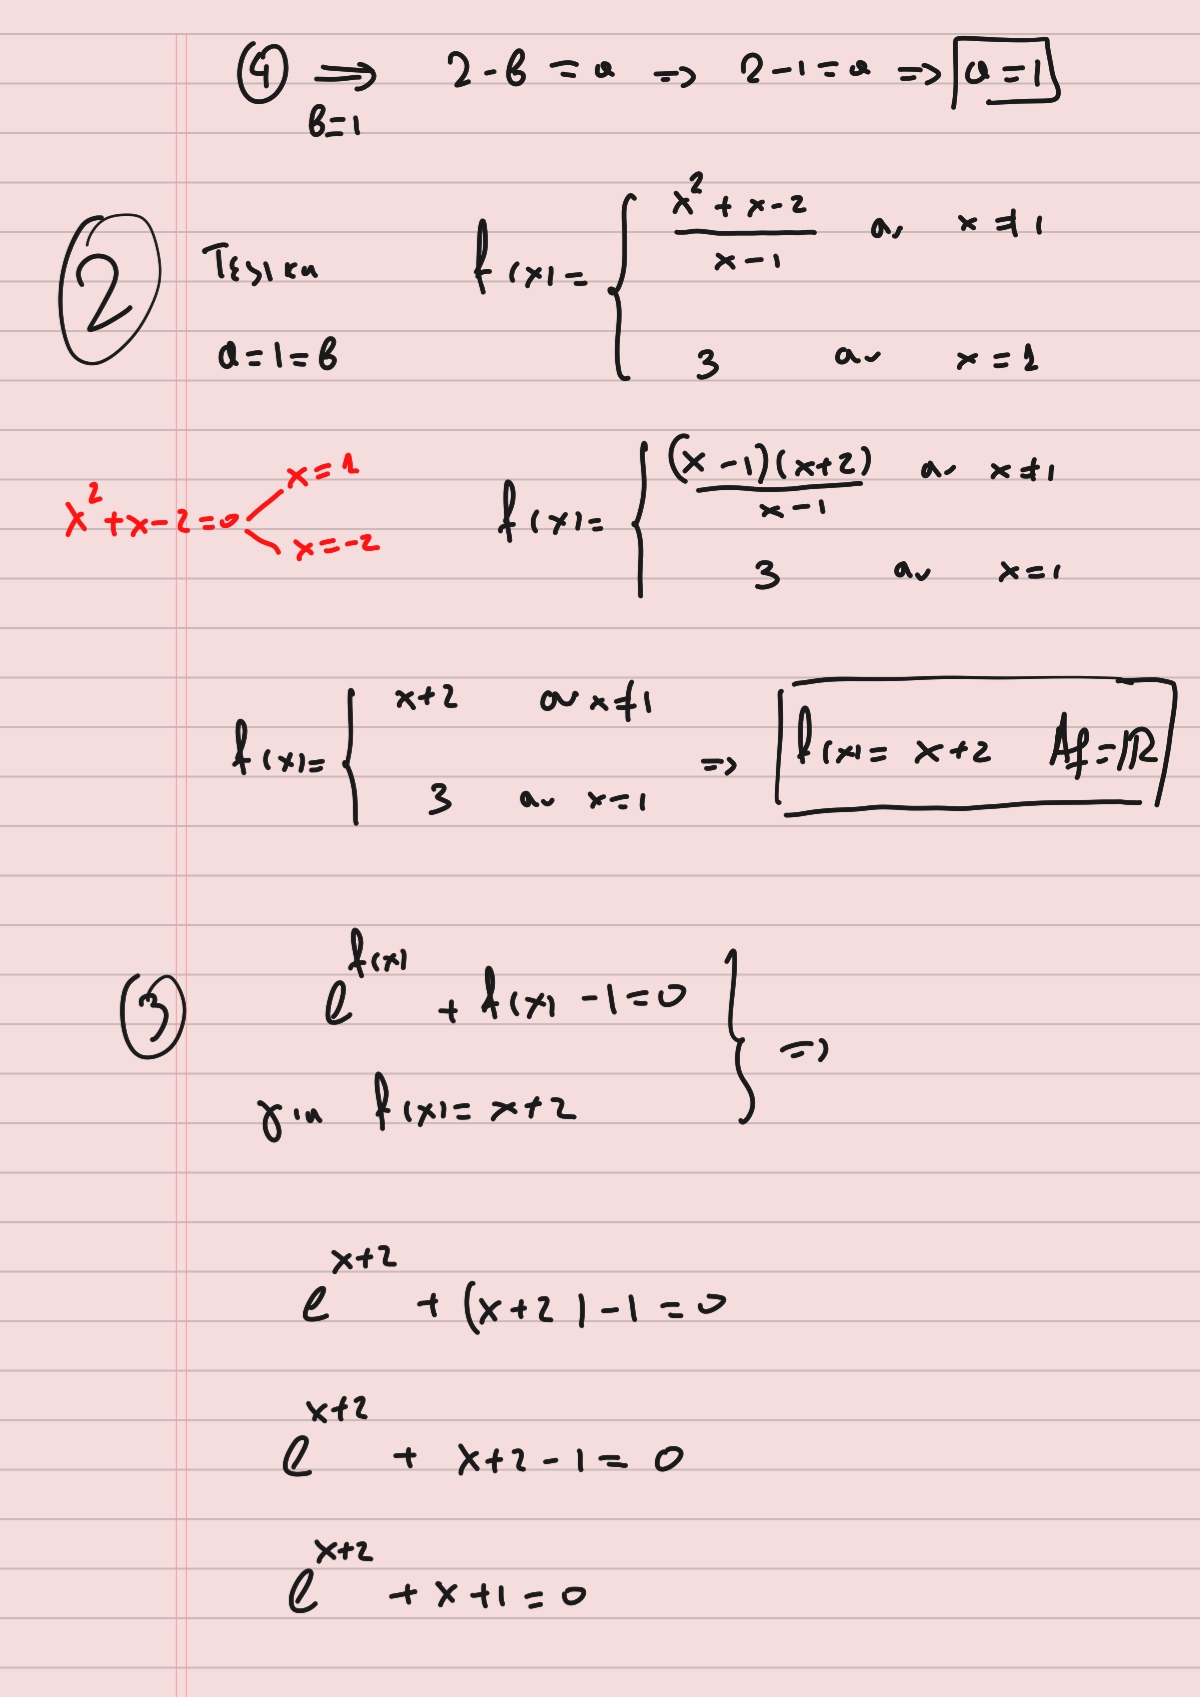 ④ ⟹ 2-β = α ⇒ 2-1=α ⇒ α=1
β=1
② Τελικα f(x)= { x²+x-2 / x-1 αν x≠1
α=1=β 3 αν x=1
x²+x-2=0 x=1 x=-2
f(x)= { (x-1)(x+2) / x-1 αν x≠1
3 αν x=1
f(x)= { x+2 αν x≠1
3 αν x=1 ⇒ f(x)= x+2 Af=ℝ
③ e^f(x) + f(x) -1=0 } ⇒
για f(x)= x+2
e^x+2 + (x+2)-1=0
e^x+2 + x+2-1=0
e^x+2 + x+1=0